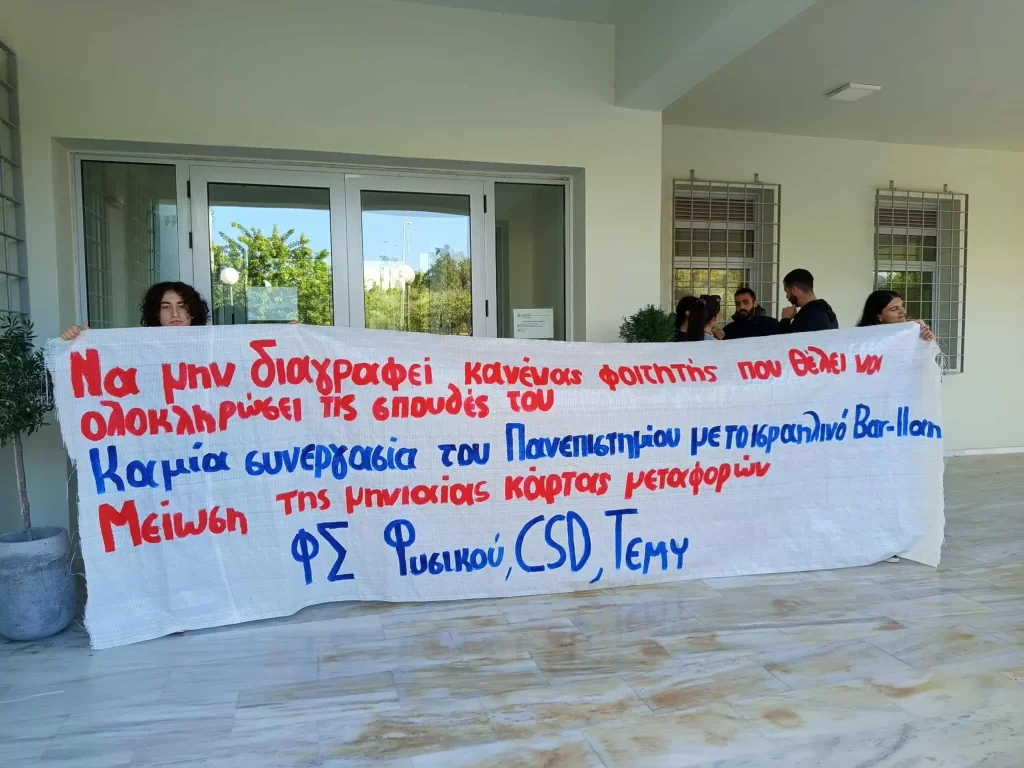 Να μην διαγραφεί κανένας φοιτητής που θέλει να
ολοκληρώσει τις σπουδές του
Καμία συνεργασία του Πανεπιστημίου με το ισραηλινό Bar-Ilan
Μείωση της μηνιαίας κάρτας μεταφορών
ΦΣ Φυσικού, CSD, ΤΕΜΥ